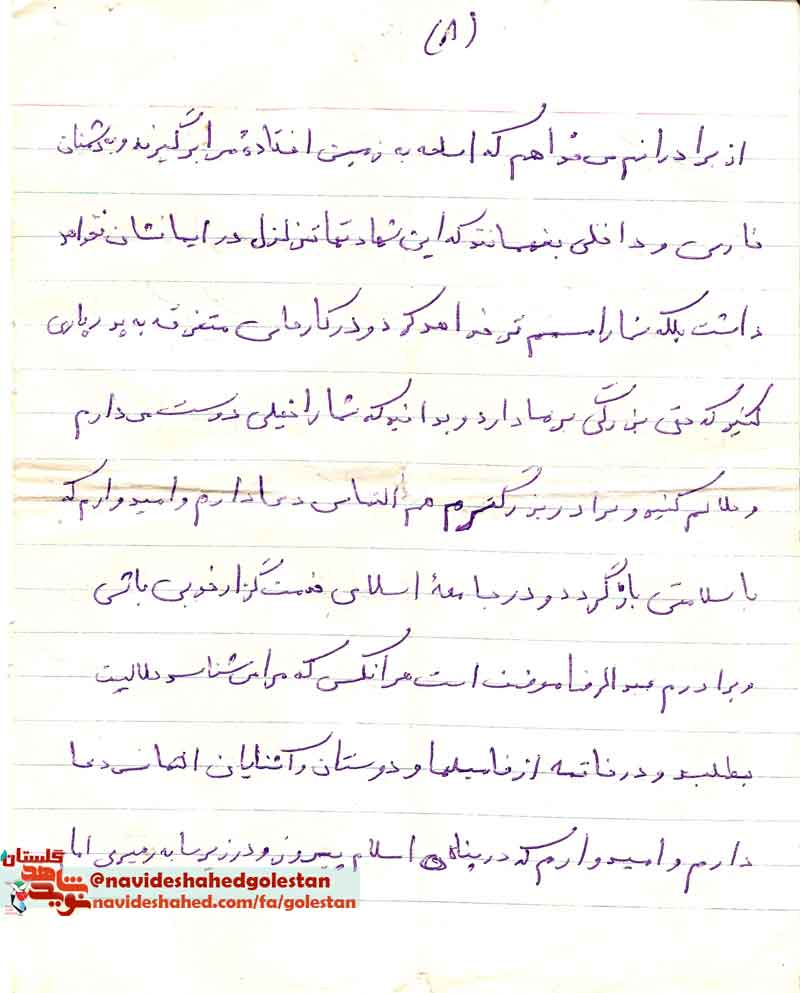 (۸)
از برادرانم می‌خواهم که اسلحه به زمین افتاده مرا برگیرند و به دشمنان
خارجی و داخلی بفهمانند که این شهادتها تزلزل در ایمانشان نخواهد
داشت بلکه شما را مصمم تر خواهد کرد و در کارهای متفرقه به پدر یاری
کنید که حق بزرگی بر ما دارد و بدانید که شما را خیلی دوست می دارم
و حلالم کنید و برادر بزرگترم هم التماس دعا دارم و امیدوارم که
با سلامتی بازگردد و در جامعهٔ اسلامی خدمت گزار خوبی باشی
و برادرم عبدالرضا موظف است هر آنکس که مرا می شناسد حلالیت
بطلبد و در خاتمه از فامیلها و دوستان و آشنایان التماس دعا
دارم و امیدوارم که در پناه اسلام پیروز و در زیر سایه رهبری اما
نوید شاهد گلستان
@navideshahedgolestan
navideshahed.com/fa/golestan